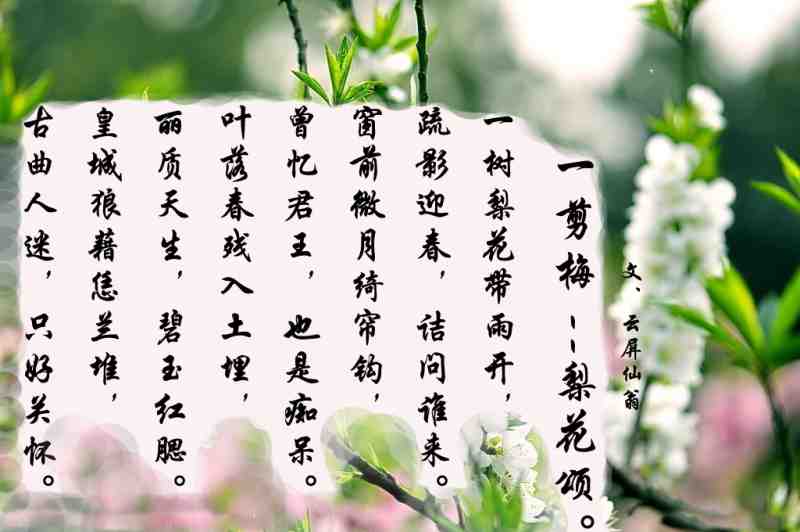 文、云屏仙翁
一剪梅--梨花颂。
一树梨花带雨开，
疏影迎春，诘问谁来。
窗前微月绮帘钩，
曾忆君王，也是痴呆。
叶落春残入土埋，
丽质天生，碧玉红腮。
皇城狼藉恁兰堆，
古曲人迷，只好关怀。